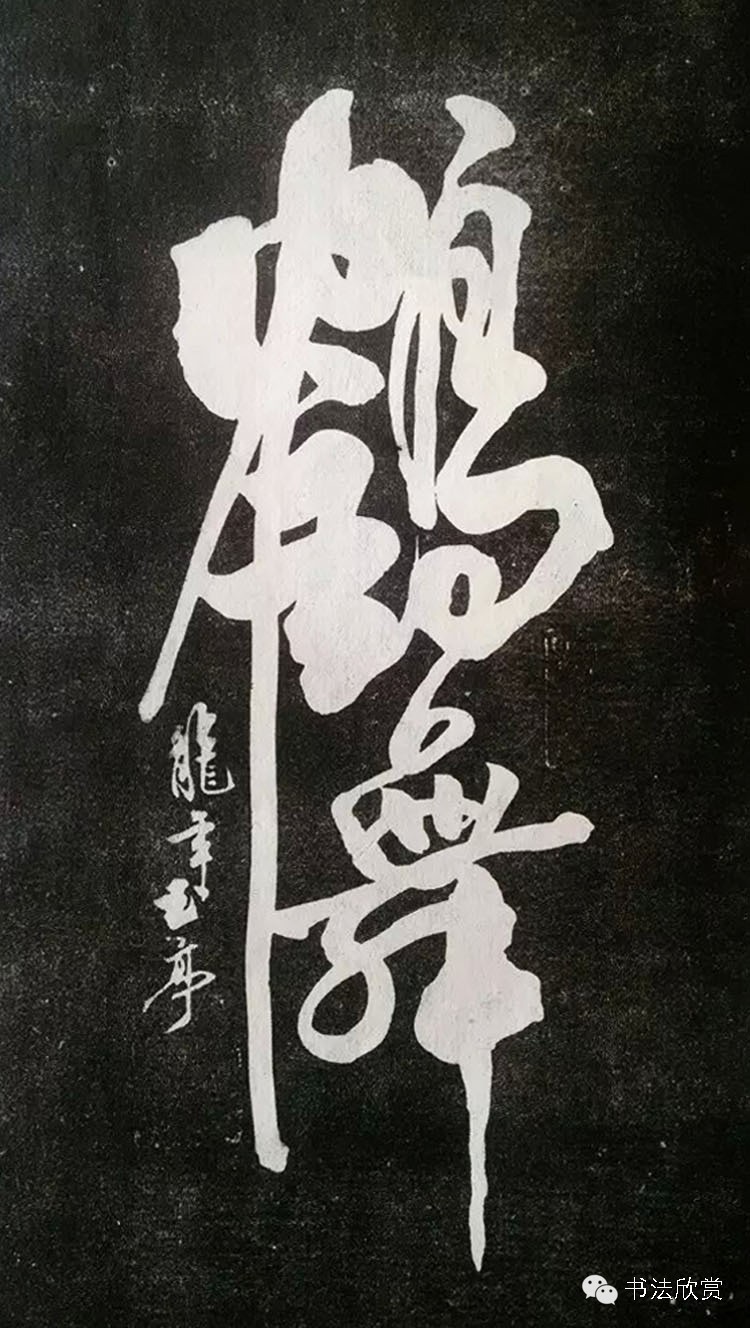 鶴舞
龍年玉亭
书法欣赏